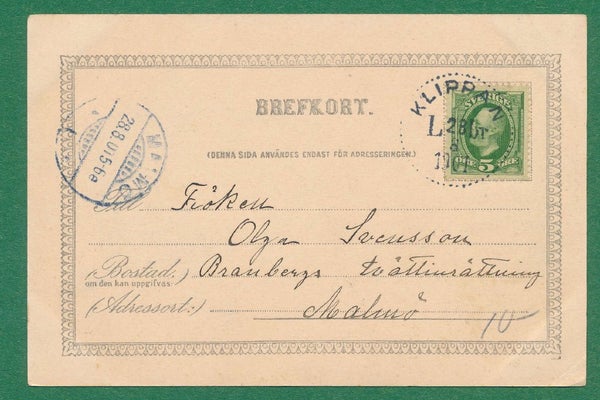 BREFKORT.
KLIPPAN
L 28 UT
8
1901
SVERIGE
ÖRE 5 ÖRE
(DENNA SIDA ANVÄNDES ENDAST FÖR ADRESSERINGEN.)
MALMÖ
28.8.01 5-6 e
Till Fröken
Olga Svensson
(Bostad.) Branbergs tvättinrättning
om den kan uppgifvas:
(Adressort:) Malmö
10-